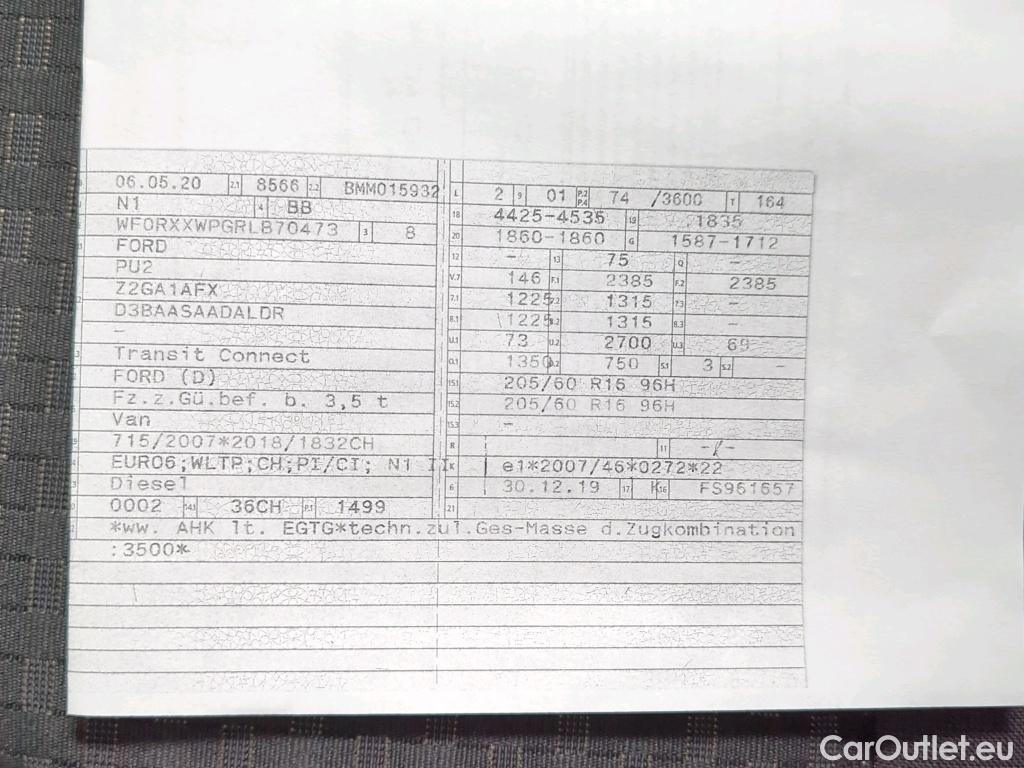 06.05.20 2.1 8566 2.2 BMM015932
N1 4 BB
WF0RXXWPGRLB70473 3 8
FORD
PU2
Z2GA1AFX
D3BAASAADALDR
–
Transit Connect
FORD (D)
Fz.z.Gü.bef. b. 3,5 t
Van
715/2007*2018/1832CH
EURO6;WLTP;CH;PI/CI; N1 II
Diesel
0002 14.1 36CH P.1 1499
L 2 9 01 P.2 P.4 74 /3600 T 164
18 4425-4535 19 1835
20 1860-1860 G 1587-1712
12 – 13 75 Q –
V.7 146 F.1 2385 F.2 2385
7.1 1225 7.2 1315 7.3 –
8.1 1225 8.2 1315 8.3 –
U.1 73 U.2 2700 U.3 69
O.1 1350 O.2 750 S.1 3 S.2 –
15.1 205/60 R16 96H
15.2 205/60 R16 96H
15.3 –
R 11 -/-
K e1*2007/46*0272*22
6 30.12.19 17 K 16 FS961657
21
*ww. AHK lt. EGTG*techn.zul.Ges-Masse d.Zugkombination
:3500*
CarOutlet.eu